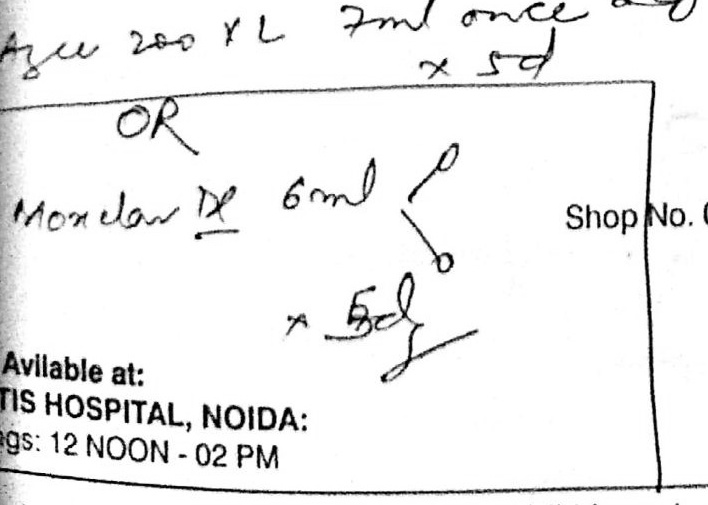 Azee 200 XL 7ml once
x 5d
OR
Monclav DS 6ml
x 5d
Shop No.
Avilable at:
TIS HOSPITAL, NOIDA:
gs: 12 NOON - 02 PM